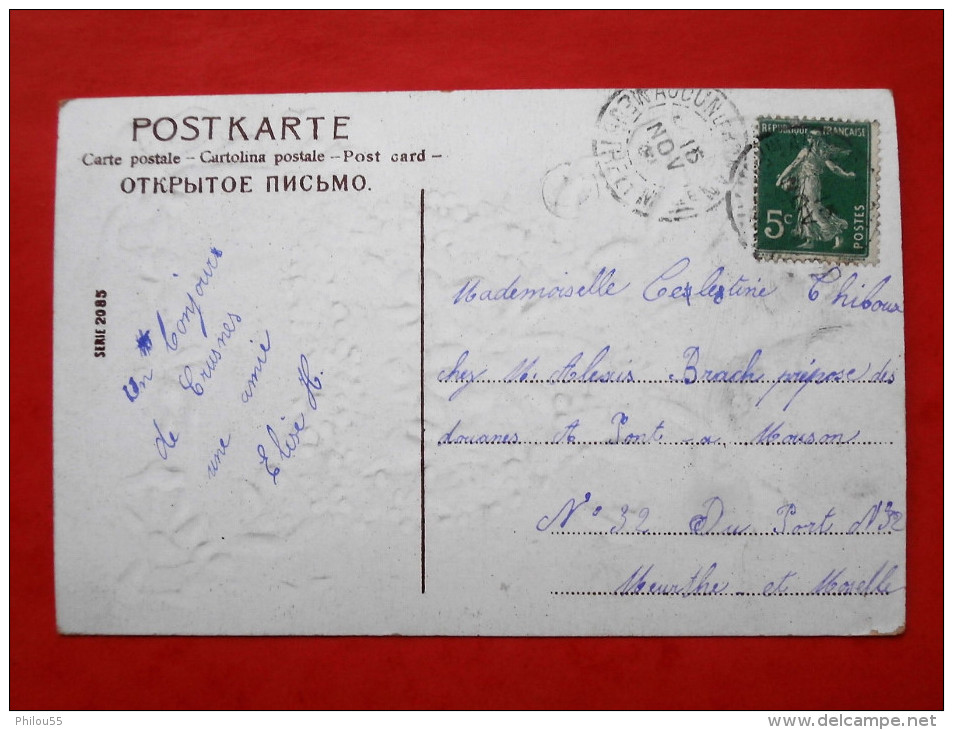 POSTKARTE
Carte postale – Cartolina postale – Post card –
ОТКРЫТОЕ ПИСЬМО.
SERIE 2085
Un Bonjour
de Trusnes
une amie
Elise H.
15
NOV
REPUBLIQUE FRANÇAISE
5c
POSTES
Mademoiselle Celestine Thiboux
chez M. Alexis Brach prépose des
douanes A Pont-a Mouson
N° 32 Du Port N 32
Meurthe et Moselle
Philou55
www.delcampe.net